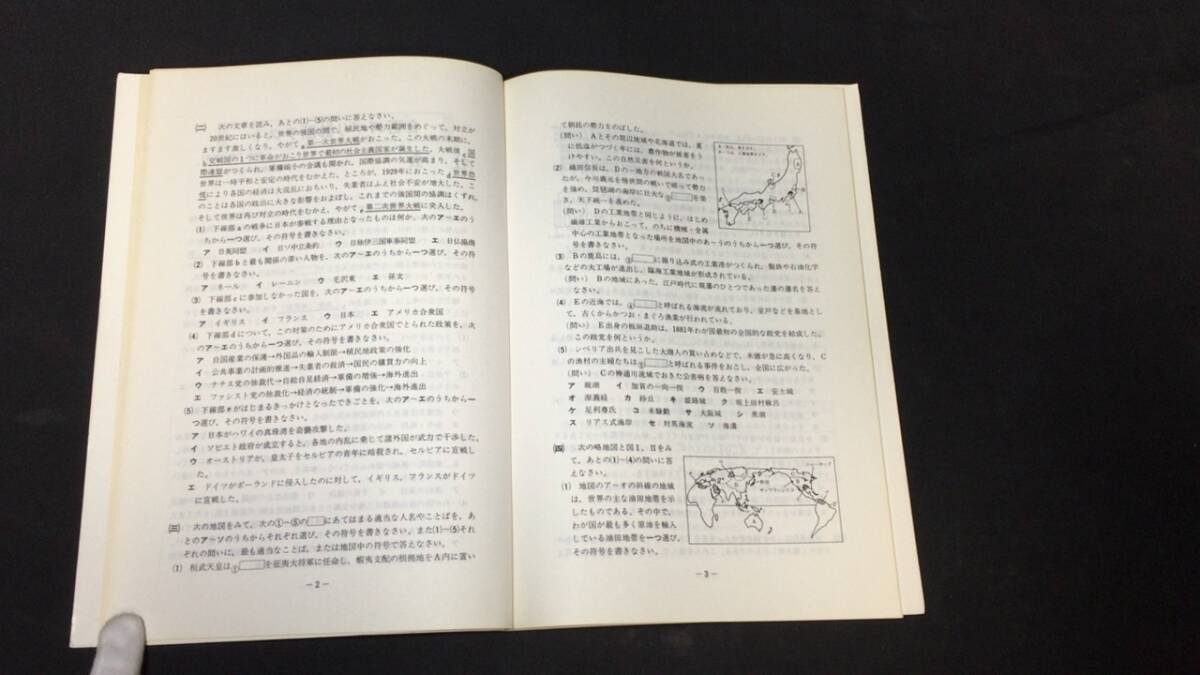 ㈡ 次の文章を読み、あとの(1)~(5)の問いに答えなさい。
20世紀にはいると、世界の強国の間で、植民地や勢力範囲をめぐって、対立が
ますます激しくなり、やがてa第一次世界大戦がおこった。この大戦の末期に、
b交戦国の1つに革命がおこり世界で最初の社会主義国家が誕生した。大戦後c国
際連盟がつくられ、軍備縮小の会議も開かれ、国際協調の気運が高まり、そして
世界は一時平和と安定の時代をむかえた。ところが、1929年におこったd世界恐
慌により各国の経済は大混乱におちいり、失業者はふえ社会不安が増大した。こ
のことは各国の政治に大きな影響をおよぼし、これまでの強国間の協調はくずれ、
そして世界は再び対立の時代をむかえ、やがてe第二次世界大戦に突入した。
(1) 下線部aの戦争に日本が参戦する理由となったものは何か、次のア~エのう
ちから一つ選び、その符号を書きなさい。
ア 日英同盟 イ 日ソ中立条約 ウ 日独伊三国軍事同盟 エ 日仏協商
(2) 下線部bと最も関係の深い人物を、次のア~エのうちから一つ選び、その符
号を書きなさい。
ア ネール イ レーニン ウ 毛沢東 エ 孫文
(3) 下線部cに参加しなかった国を、次のア~エのうちから一つ選び、その符号
を書きなさい。
ア イギリス イ フランス ウ 日本 エ アメリカ合衆国
(4) 下線部dについて、この対策のためにアメリカ合衆国でとられた政策を、次
のア~エのうちから一つ選び、その符号を書きなさい。
ア 自国産業の保護→外国品の輸入制限→植民地政策の強化
イ 公共事業の計画的推進→失業者の救済→国民の購買力の向上
ウ ナチス党の独裁代→自給自足経済→軍備の増強→海外進出
エ ファシスト党の独裁化→経済の統制→軍備の強化→海外進出
(5) 下線部eがはじまるきっかけとなったできごとを、次のア~エのうちから一
つ選び、その符号を書きなさい。
ア 日本がハワイの真珠湾を奇襲攻撃した。
イ ソビエト政府が成立すると、各地の内乱に乗じて諸外国が武力で干渉した。
ウ オーストリアが、皇太子をセルビアの青年に暗殺され、セルビアに宣戦し
た。
エ ドイツがポーランドに侵入したのに対して、イギリス、フランスがドイツ
に宣戦した。
㈢ 次の地図をみて、次の①~⑤の□にあてはまる適当な人名やことばを、あ
とのア~ソのうちからそれぞれ選び、その符号を書きなさい。また(1)~(5)それ
ぞれの問いに、最も適当なことば、または地図中の符号で答えなさい。
(1) 桓武天皇は①□を征夷大将軍に任命し、蝦夷支配の根拠地をA内に置い
－2－
て朝廷の勢力をのばした。
(問い) Aとその周辺地域や北海道では、夏
に低温がつづく年には、農作物が被害をう
けやすい。この自然災害を何というか。
(2) 織田信長は、Dの一地方の戦国大名であっ
たが、今川義元を桶狭間の戦いで破って勢力
を強め、琵琶湖の海岸に壮大な②□を築
き、天下統一を進めた。
(問い) Dの工業地帯と同じように、はじめ
繊維工業からおこって、のちに機械・金属
中心の工業地帯となった場所を地図中のあ~うのうちから一つ選び、その符
号を書きなさい。
(3) Bの鹿島には、③□に掘り込み式の工業港がつくられ、製鉄や石油化学
などの大工場が進出し、臨海工業地域が形成されている。
(問い) Bの地域にあった、江戸時代に親藩のひとつであった藩の藩名を答え
なさい。
(4) Eの近海では、④□と呼ばれる海流が流れており、室戸などを基地とし
て、古くからかつお・まぐろ漁業が行われている。
(問い) E出身の板垣退助は、1881年わが国最初の全国的な政党を結成した。
この政党を何というか。
(5) シベリア出兵を見こした大商人の買い占めなどで、米価が急に高くなり、C
の漁村の主婦たちは⑤□と呼ばれる事件をおこし、全国に広がった。
(問い) Cの神通川流域でおきた公害病を答えなさい。
ア 親潮 イ 加賀の一向一揆 ウ 百姓一揆 エ 安土城
オ 源義経 カ 砂丘 キ 姫路城 ク 坂上田村麻呂
ケ 足利尊氏 コ 米騒動 サ 大阪城 シ 黒潮
ス リアス式海岸 セ 対馬海流 ソ 海溝
㈣ 次の略地図と図Ⅰ、Ⅱをみ
て、あとの(1)~(4)の問いに答
えなさい。
(1) 地図のア~オの斜線の地域
は、世界の主な油田地帯を示
したものである。その中で、
わが国が最も多く原油を輸入
している油田地帯を一つ選び、
その符号を書きなさい。
－3－